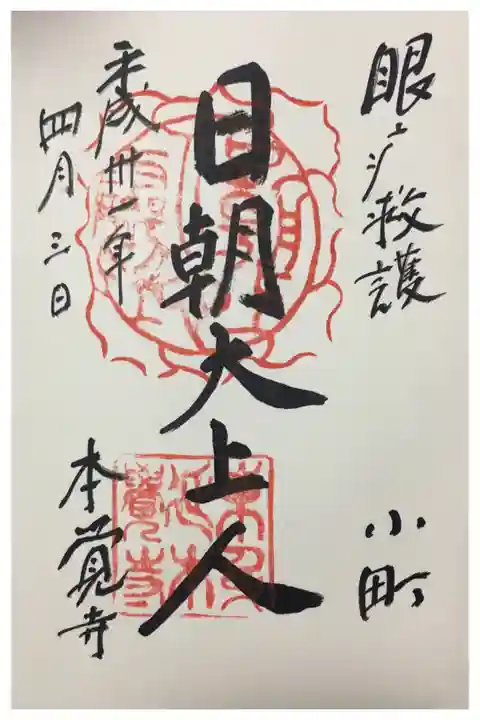 眼病救護
小町
日朝大上人
平成卅一年
四月三日
本覚寺